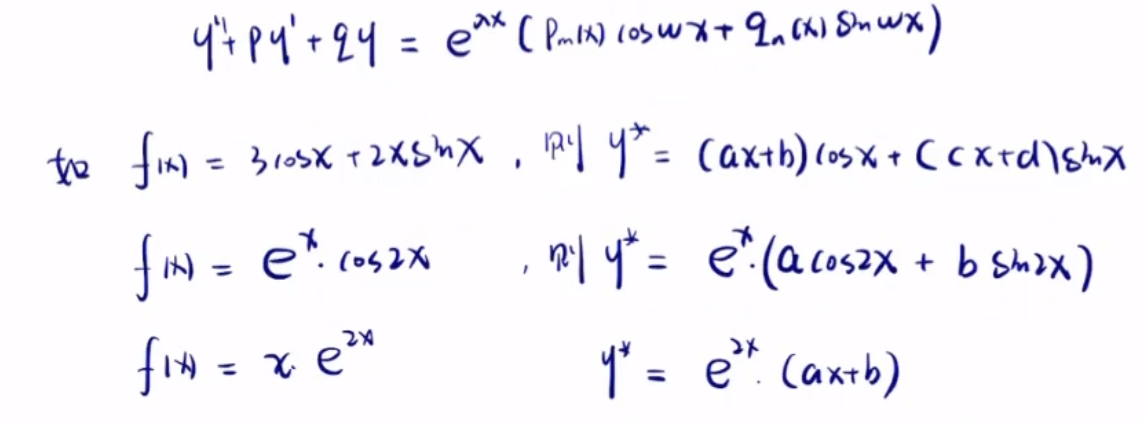 y''+py'+qy = e^{λx} ( P_m(x) cos wx + q_n(x) sin wx )
如 f(x) = 3cosx + 2xsinx , 则 y* = (ax+b)cosx + (cx+d)sinx
f(x) = e^x · cos2x , 则 y* = e^x · (a cos2x + b sin2x)
f(x) = x · e^{2x} y* = e^{2x} · (ax+b)